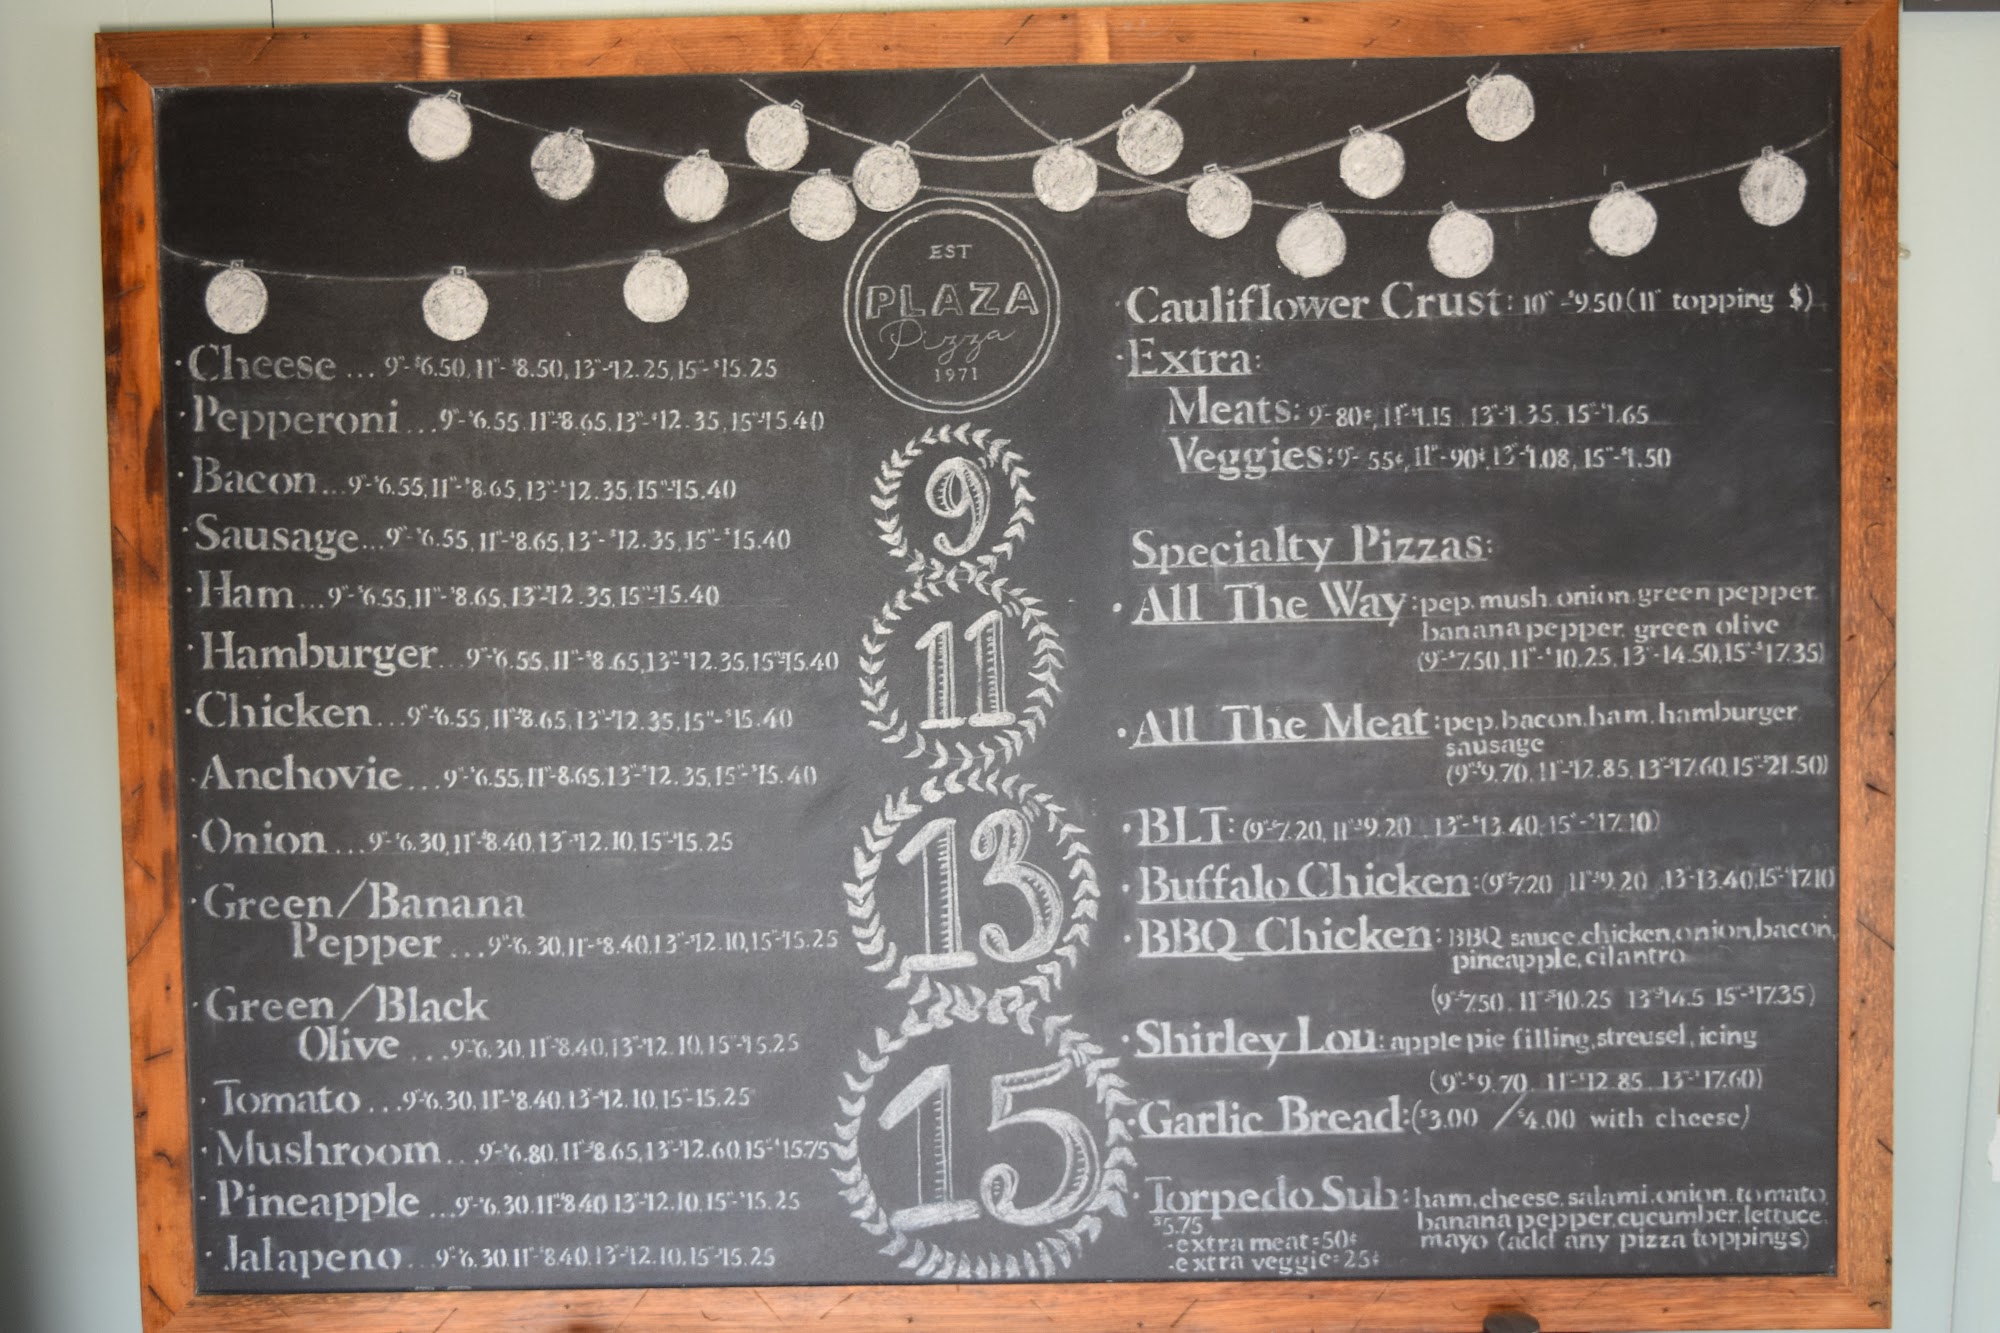 EST
PLAZA
Pizza
1971
· Cheese ... 9"-$6.50, 11"-$8.50, 13"-$12.25, 15"-$15.25
· Pepperoni ... 9"-$6.55, 11"-$8.65, 13"-$12.35, 15"-$15.40
· Bacon ... 9"-$6.55, 11"-$8.65, 13"-$12.35, 15"-$15.40
· Sausage ... 9"-$6.55, 11"-$8.65, 13"-$12.35, 15"-$15.40
· Ham ... 9"-$6.55, 11"-$8.65, 13"-$12.35, 15"-$15.40
· Hamburger ... 9"-$6.55, 11"-$8.65, 13"-$12.35, 15"-$15.40
· Chicken ... 9"-$6.55, 11"-$8.65, 13"-$12.35, 15"-$15.40
· Anchovie ... 9"-$6.55, 11"-$8.65, 13"-$12.35, 15"-$15.40
· Onion ... 9"-$6.30, 11"-$8.40, 13"-$12.10, 15"-$15.25
· Green/Banana
Pepper ... 9"-$6.30, 11"-$8.40, 13"-$12.10, 15"-$15.25
· Green/Black
Olive ... 9"-$6.30, 11"-$8.40, 13"-$12.10, 15"-$15.25
· Tomato ... 9"-$6.30, 11"-$8.40, 13"-$12.10, 15"-$15.25
· Mushroom ... 9"-$6.80, 11"-$8.65, 13"-$12.60, 15"-$15.75
· Pineapple ... 9"-$6.30, 11"-$8.40, 13"-$12.10, 15"-$15.25
· Jalapeno ... 9"-$6.30, 11"-$8.40, 13"-$12.10, 15"-$15.25
9
11
13
15
· Cauliflower Crust: 10"-$9.50 (11" topping $)
· Extra:
Meats: 9"-80¢, 11"-$1.15 13"-$1.35, 15"-$1.65
Veggies: 9"-55¢, 11"-90¢, 13"-$1.08, 15"-$1.50
Specialty Pizzas:
· All The Way: pep, mush, onion, green pepper,
banana pepper, green olive
(9"-$7.50, 11"-$10.25, 13"-14.50, 15"-$17.35)
· All The Meat: pep, bacon, ham, hamburger,
sausage
(9"-$9.70, 11"-$12.85, 13"-$17.60, 15"-$21.50)
· BLT: (9"-$7.20, 11"-$9.20 13"-$13.40, 15"-$17.10)
· Buffalo Chicken: (9"-$7.20 11"-$9.20 13"-13.40, 15"-$17.10
· BBQ Chicken: BBQ sauce, chicken, onion, bacon,
pineapple, cilantro
(9"-$7.50, 11"-$10.25 13"-$14.5 15"-$17.35)
· Shirley Lou: apple pie filling, streusel, icing
(9"-$9.70, 11"-$12.85, 13"-$17.60)
· Garlic Bread: ($3.00 / $4.00 with cheese)
· Torpedo Sub: ham, cheese, salami, onion, tomato,
$5.75 banana pepper, cucumber, lettuce,
· extra meat=50¢ mayo (add any pizza toppings)
· extra veggie=25¢